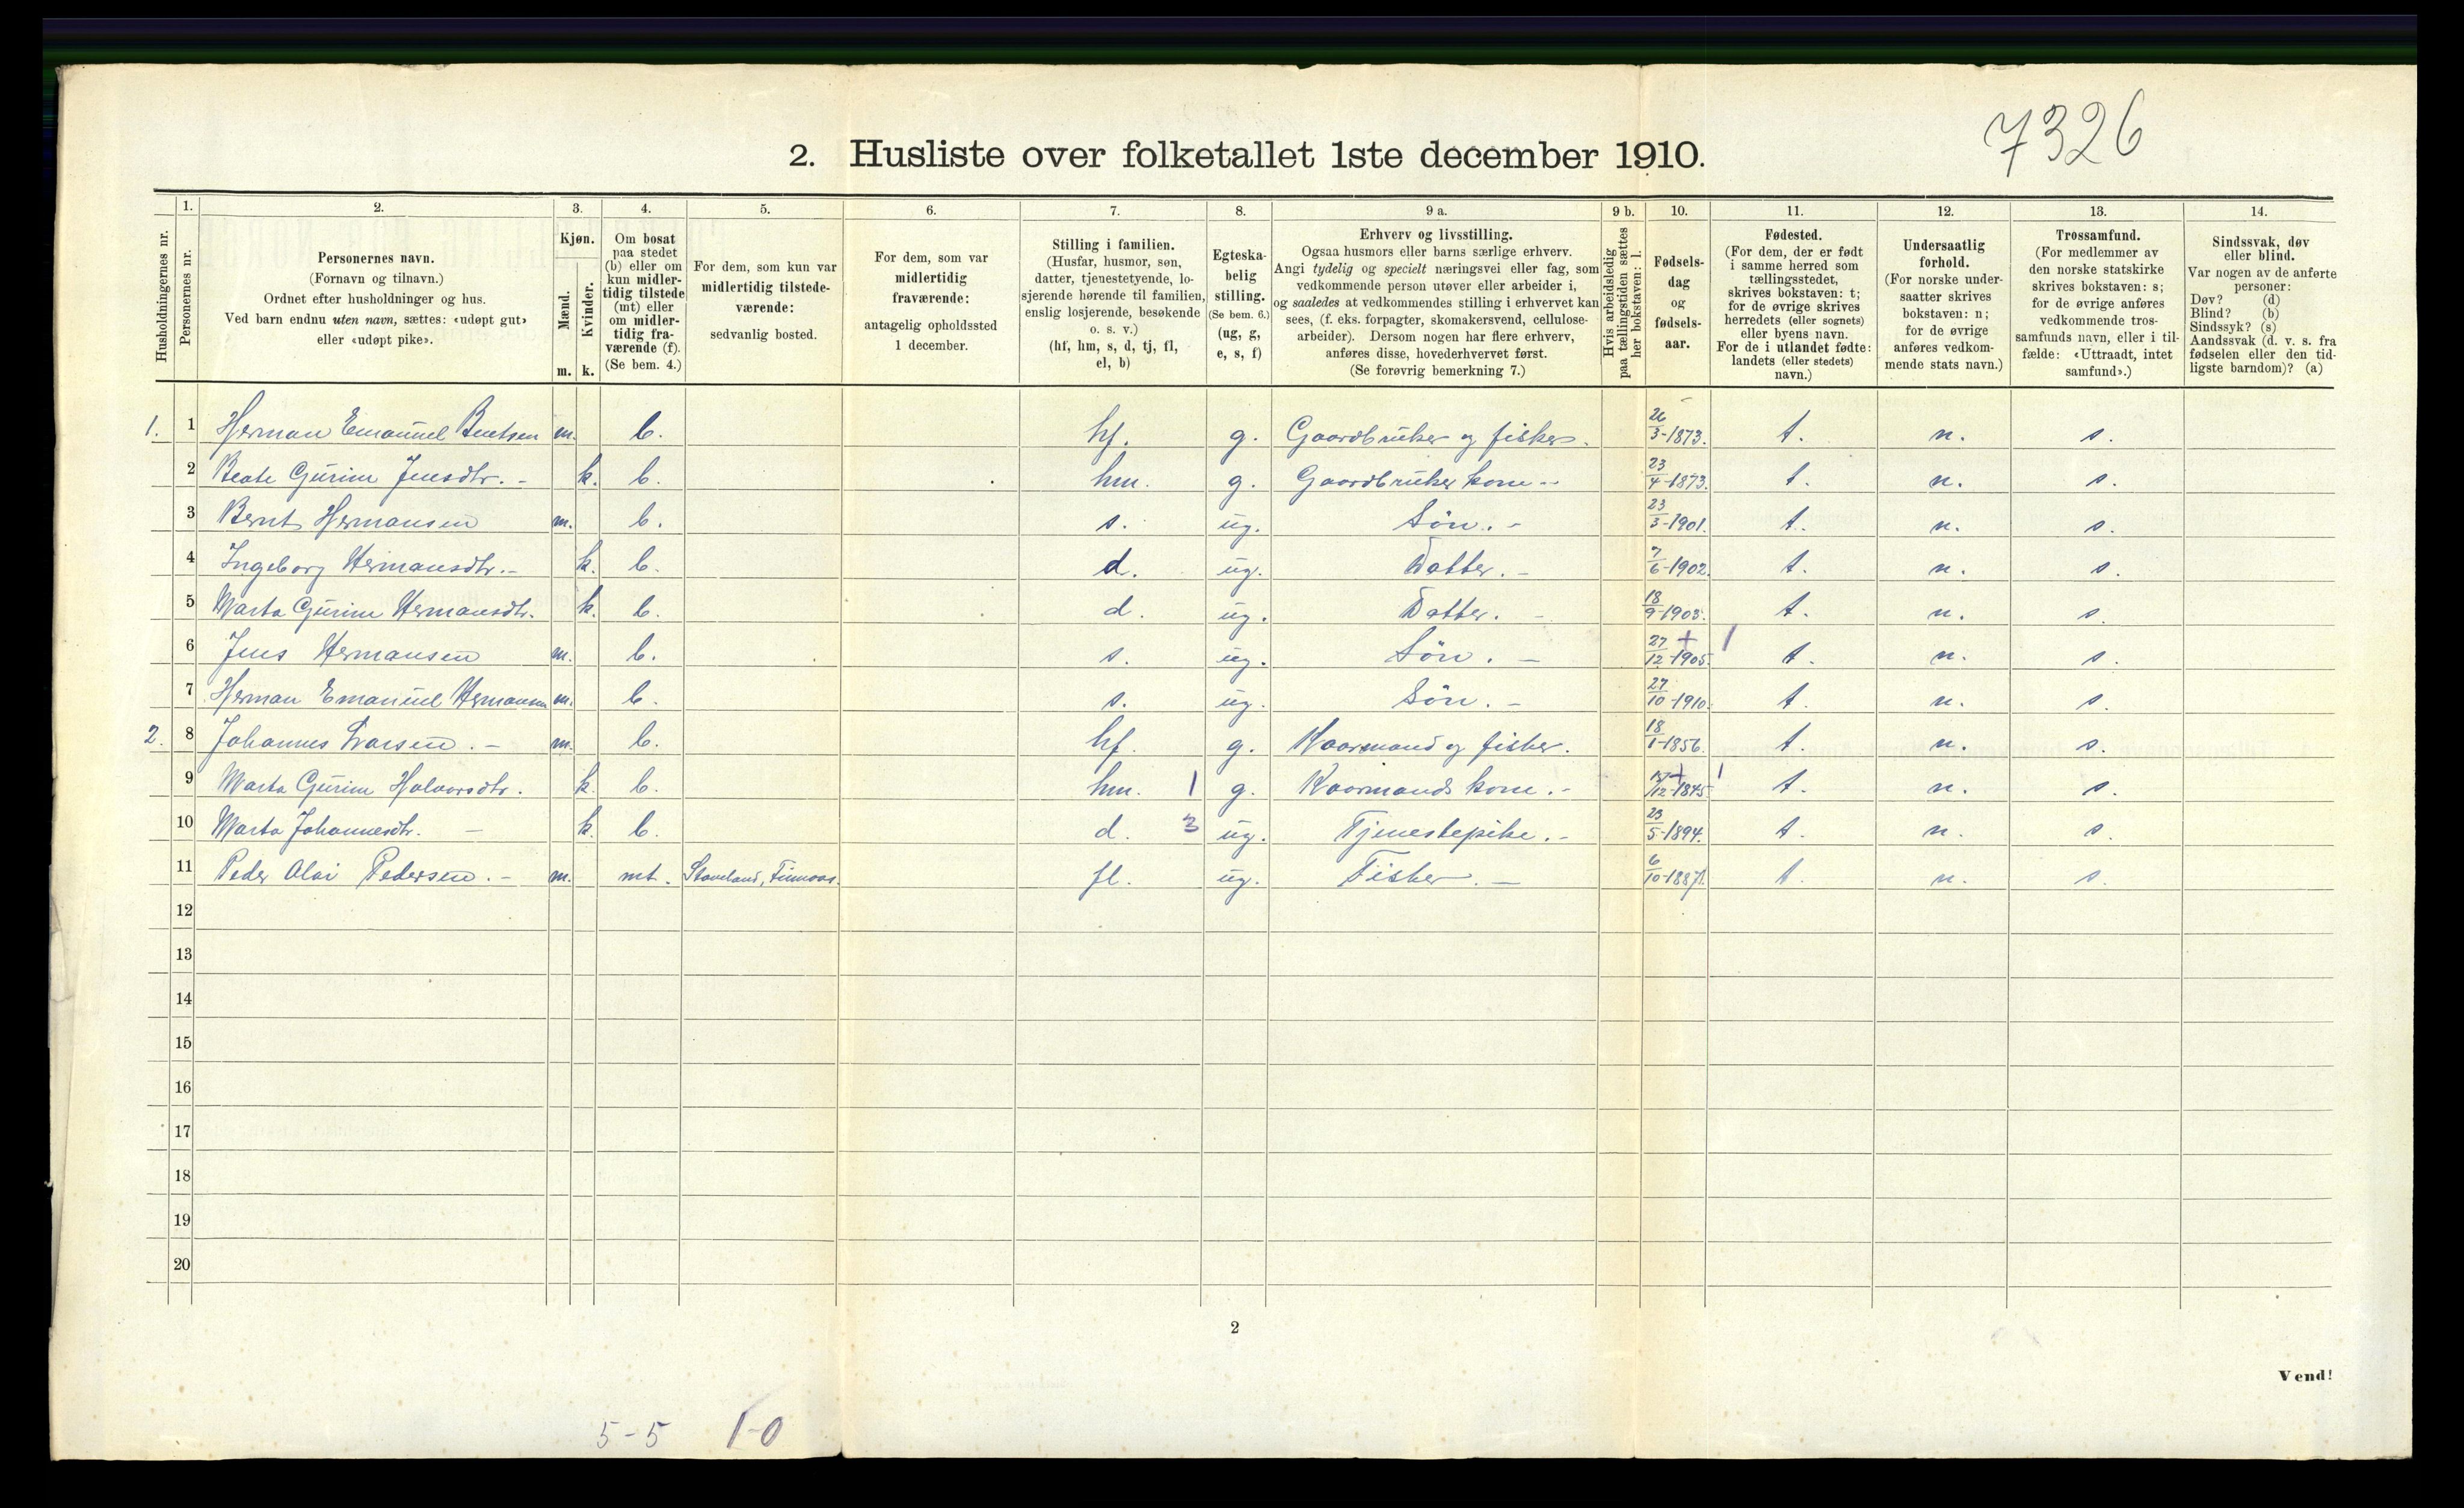 7326
2. Husliste over folketallet 1ste december 1910.
Husholdningernes nr.
1. Personernes nr.
2. Personernes navn.
(Fornavn og tilnavn.)
Ordnet efter husholdninger og hus.
Ved barn endnu uten navn, sættes: «udøpt gut»
eller «udøpt pike».
3. Kjøn.
Mænd. m.
Kvinder. k.
4. Om bosat
paa stedet
(b) eller om
kun midler-
tidig tilstede
(mt) eller
om midler-
tidig fra-
værende (f).
(Se bem. 4.)
5. For dem, som kun var
midlertidig tilstede-
værende:
sedvanlig bosted.
6. For dem, som var
midlertidig
fraværende:
antagelig opholdssted
1 december.
7. Stilling i familien.
(Husfar, husmor, søn,
datter, tjenestetyende, lo-
sjerende hørende til familien,
enslig losjerende, besøkende
o. s. v.)
(hf, hm, s, d, tj, fl,
el, b)
8. Egteska-
belig
stilling.
(Se bem. 6.)
(ug, g,
e, s, f)
9 a. Erhverv og livsstilling.
Ogsaa husmors eller barns særlige erhverv.
Angi tydelig og specielt næringsvei eller fag, som
vedkommende person utøver eller arbeider i,
og saaledes at vedkommendes stilling i erhvervet kan
sees, (f. eks. forpagter, skomakersvend, cellulose-
arbeider). Dersom nogen har flere erhverv,
anføres disse, hovederhvervet først.
(Se forøvrig bemerkning 7.)
9 b. Hvis arbeidsledig
paa tællingstiden sættes
her bokstaven: l.
10. Fødsels-
dag
og
fødsels-
aar.
11. Fødested.
(For dem, der er født
i samme herred som
tællingsstedet,
skrives bokstaven: t;
for de øvrige skrives
herredets (eller sognets)
eller byens navn.
For de i utlandet fødte:
landets (eller stedets)
navn.)
12. Undersaatlig
forhold.
(For norske under-
saatter skrives
bokstaven: n;
for de øvrige
anføres vedkom-
mende stats navn.)
13. Trossamfund.
(For medlemmer av
den norske statskirke
skrives bokstaven: s;
for de øvrige anføres
vedkommende tros-
samfunds navn, eller i til-
fælde: «Uttraadt, intet
samfund».)
14. Sindssvak, døv
eller blind.
Var nogen av de anførte
personer:
Døv? (d)
Blind? (b)
Sindssyk? (s)
Aandssvak (d. v. s. fra
fødselen eller den tid-
ligste barndom)? (a)
1. 1 Herman Emanuel Bentsen m. b. hf. g. Gaardbruker og fisker. 26/3-1873. t. n. s.
2 Beate Gurine Jensdtr. - k. b. hm. g. Gaardbruker kone - 23/4-1873. t. n. s.
3 Bernt Hermansen m. b. s. ug. Søn. - 23/3-1901. t. n. s.
4 Ingeborg Hermansdtr. - k. b. d. ug. Datter. - 7/6-1902. t. n. s.
5 Marta Gurine Hermansdtr. k. b. d. ug. Datter. - 18/9-1903. t. n. s.
6 Jens Hermansen m. b. s. ug. Søn. - 27/12-1905. + 1 t. n. s.
7 Herman Emanuel Hermansen m. b. s. ug. Søn. - 27/10-1910. t. n. s.
2. 8 Johannes Larsen. - m. b. hf. g. Kaarmand og fisker. 18/1-1856. t. n. s.
9 Marta Gurine Halvorsdtr. k. b. hm. 1 g. Kaarmands kone. - /12-1845 + 1 t. n. s.
10 Marta Johannesdtr. - k. b. d. 3 ug. Tjenestepike. - 23/5-1894. t. n. s.
11 Peder Olai Pedersen. - m. mt. Staveland, Finnaas. fl. ug. Fisker. - 6/10-1887. t. n. s.
12
13
14
15
16
17
18
19
20
2
Vend!
5-5 1-0